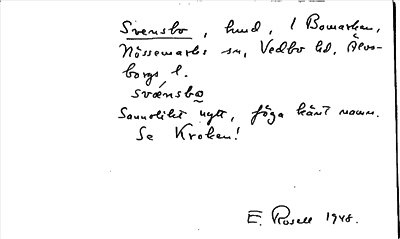 Svensbo, hmd, i Bomarken,
Nössemarks sn, Vedbo hd, Älvs-
borgs l.
svǽnsbo
Sannolikt nytt, föga känt namn.
Se Kroken!
E. Rosell 1948.